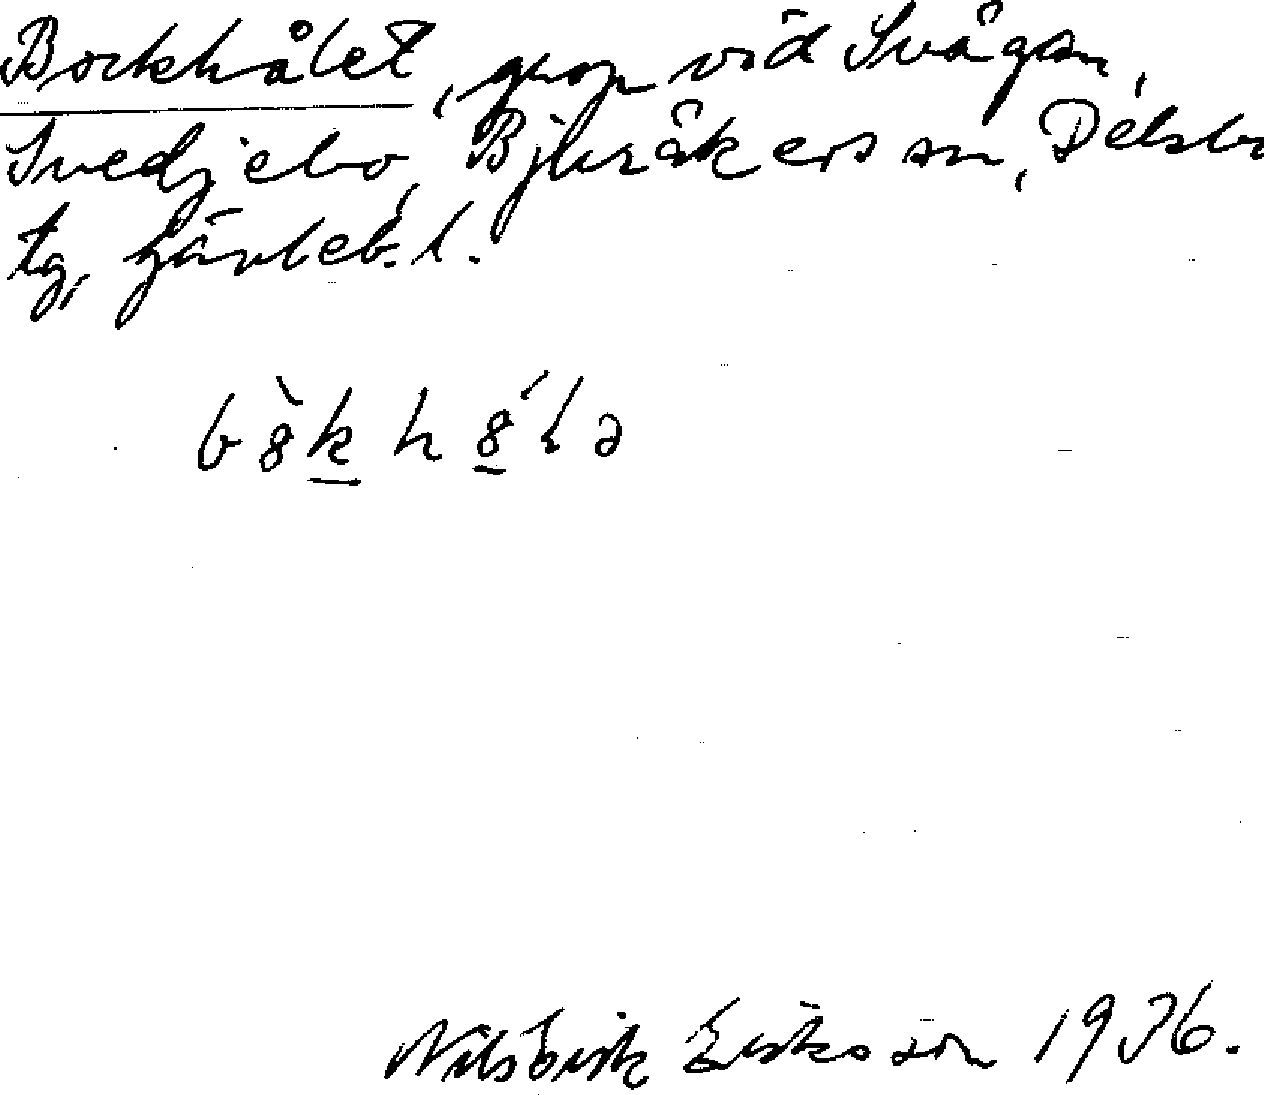 Bockhålet, grop vid Svågan,
Svedjebo, Bjuråkers sn, Delsbo
tg, Gävleb. l.
b8̀k h8́lə
Nilserik Eriksson 1936.